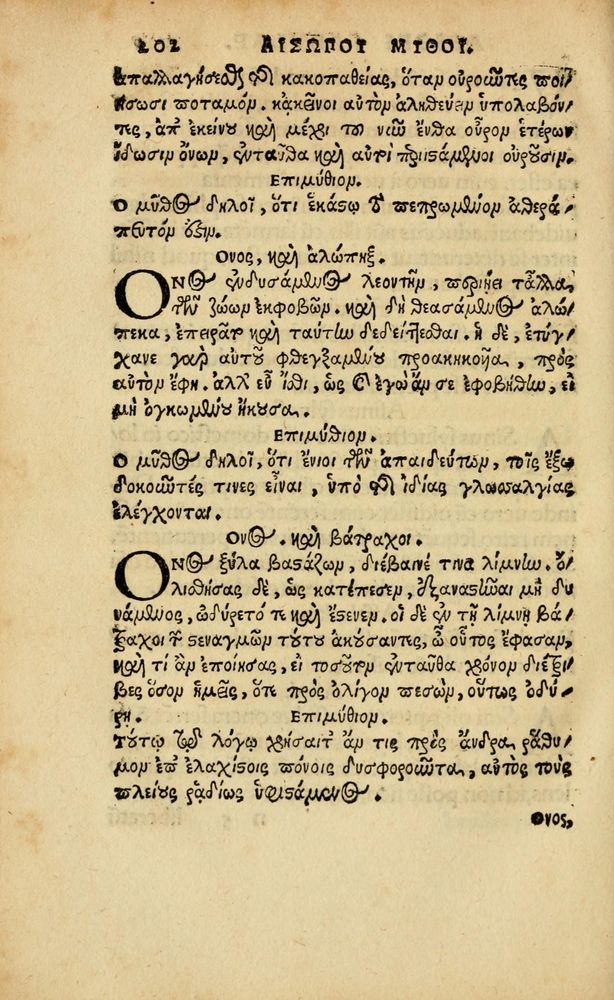 202 ΑΙΣΩΠΟΥ ΜΥΘΟΙ.
ἀπαλλαγήσεσθαι τῆς κακοπαθείας, ὅταν οὐροῦντες ποι-
ήσωσι ποταμόν. κἀκεῖνοι αὐτὸν ἀληθεύειν ὑπολαβόν-
τες, ἀπ' ἐκείνου καὶ μέχρι τοῦ νῦν ἔνθα οὖρον ἑτέρων
ἴδωσιν ὄνων, ἐνταῦθα καὶ αὐτοὶ περιϊστάμενοι οὐροῦσιν.
Ἐπιμύθιον.
Ο μῦθος δηλοῖ, ὅτι ἑκάστῳ τὸ πεπρωμένον ἀθερά-
πευτόν ἐστιν.
Ονος, καὶ ἀλώπηξ.
ΟΝος ἐνδυσάμενος λεοντῆν, περιῄει τἆλλα
τῶν ζώων ἐκφοβῶν. καὶ δὴ θεασάμενος ἀλώ-
πεκα, ἐπειρᾶτο καὶ ταύτην δεδείττεσθαι. ἡ δὲ, ἐτύγ-
χανε γὰρ αὐτοῦ φθεγξαμένου προακηκουῖα, πρὸς
αὐτὸν ἔφη. ἀλλ' εὖ ἴσθι, ὡς καὶ ἐγὼ ἄν σε ἐφοβήθην, εἰ
μὴ ὀγκωμένου ἤκουσα.
Ἐπιμύθιον.
Ο μῦθος δηλοῖ, ὅτι ἔνιοι τῶν ἀπαιδεύτων, τοῖς ἔξω
δοκοῦντές τινες εἶναι, ὑπὸ τῆς ἰδίας γλωσσαλγίας
ἐλέγχονται.
Ονος. καὶ βάτραχοι.
ΟΝος ξύλα βαστάζων, διέβαινέ τινα λίμνην. ὀ-
λισθήσας δὲ, ὡς κατέπεσεν, ἐξαναστῆναι μὴ δυ-
νάμενος, ὠδύρετό τε καὶ ἔστενεν. οἱ δὲ ἐν τῇ λίμνῃ βά-
τραχοι τῶν στεναγμῶν τούτου ἀκούσαντες, ὦ οὗτος ἔφασαν,
καὶ τί ἂν ἐποίησας, εἰ τοσοῦτον ἐνταῦθα χρόνον διέτρι-
βες ὅσον ἡμεῖς, ὅτε πρὸς ὀλίγον πεσὼν, οὕτως ὀδύ-
ρῃ. Ἐπιμύθιον.
Τούτῳ τῷ λόγῳ χρήσαιτ' ἄν τις πρὸς ἄνδρα ῥᾴθυ-
μον ἐπ' ἐλαχίστοις πόνοις δυσφοροῦντα, αὐτὸς τοὺς
πλείους ῥᾳδίως ὑφιστάμενος.
Ονος,